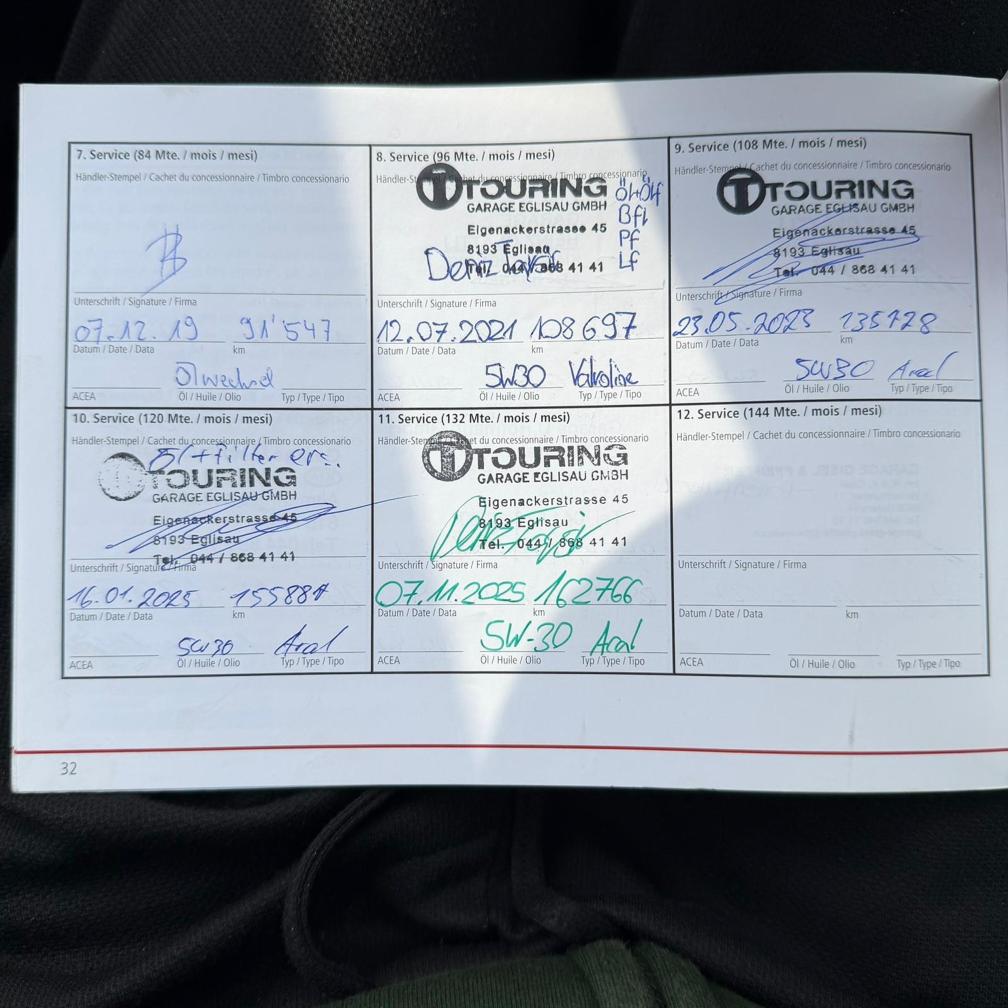 7. Service (84 Mte. / mois / mesi)
Händler-Stempel / Cachet du concessionnaire / Timbro concessionario
B
Unterschrift / Signature / Firma
07.12.19 91'547
Datum / Date / Data km
Ölwechsel
ACEA Öl / Huile / Olio Typ / Type / Tipo
8. Service (96 Mte. / mois / mesi)
Händler-St Cachet du concessionnaire / Timbro concessionario
TOURING
GARAGE EGLISAU GMBH
Öl+Ölf
Bfl
Pf
Lf
Eigenackerstrasse 45
8193 Eglisau
Tel. 044 / 868 41 41
Unterschrift / Signature / Firma
12.07.2021 108697
Datum / Date / Data km
5W30 Valvoline
ACEA Öl / Huile / Olio Typ / Type / Tipo
9. Service (108 Mte. / mois / mesi)
Händler-Stempel / Cachet du concessionnaire / Timbro concessionario
TOURING
GARAGE EGLISAU GMBH
Eigenackerstrasse 45
8193 Eglisau
Tel. 044 / 868 41 41
Unterschrift / Signature / Firma
23.05.2023 135728
Datum / Date / Data km
5W30 Aral
ACEA Öl / Huile / Olio Typ / Type / Tipo
10. Service (120 Mte. / mois / mesi)
Händler-Stempel / Cachet du concessionnaire / Timbro concessionario
Öl+filter ers.
TOURING
GARAGE EGLISAU GMBH
Eigenackerstrasse 45
8193 Eglisau
Tel. 044 / 868 41 41
Unterschrift / Signature / Firma
16.01.2025
Datum / Date / Data km
5W30 Aral
ACEA Öl / Huile / Olio Typ / Type / Tipo
11. Service (132 Mte. / mois / mesi)
Händler-Stempel / Cachet du concessionnaire / Timbro concessionario
TOURING
GARAGE EGLISAU GMBH
Eigenackerstrasse 45
8193 Eglisau
Tel. 044 / 868 41 41
Unterschrift / Signature / Firma
07.11.2025 162766
Datum / Date / Data km
5W-30 Aral
ACEA Öl / Huile / Olio Typ / Type / Tipo
12. Service (144 Mte. / mois / mesi)
Händler-Stempel / Cachet du concessionnaire / Timbro concessionario
Unterschrift / Signature / Firma
Datum / Date / Data km
ACEA Öl / Huile / Olio Typ / Type / Tipo
32